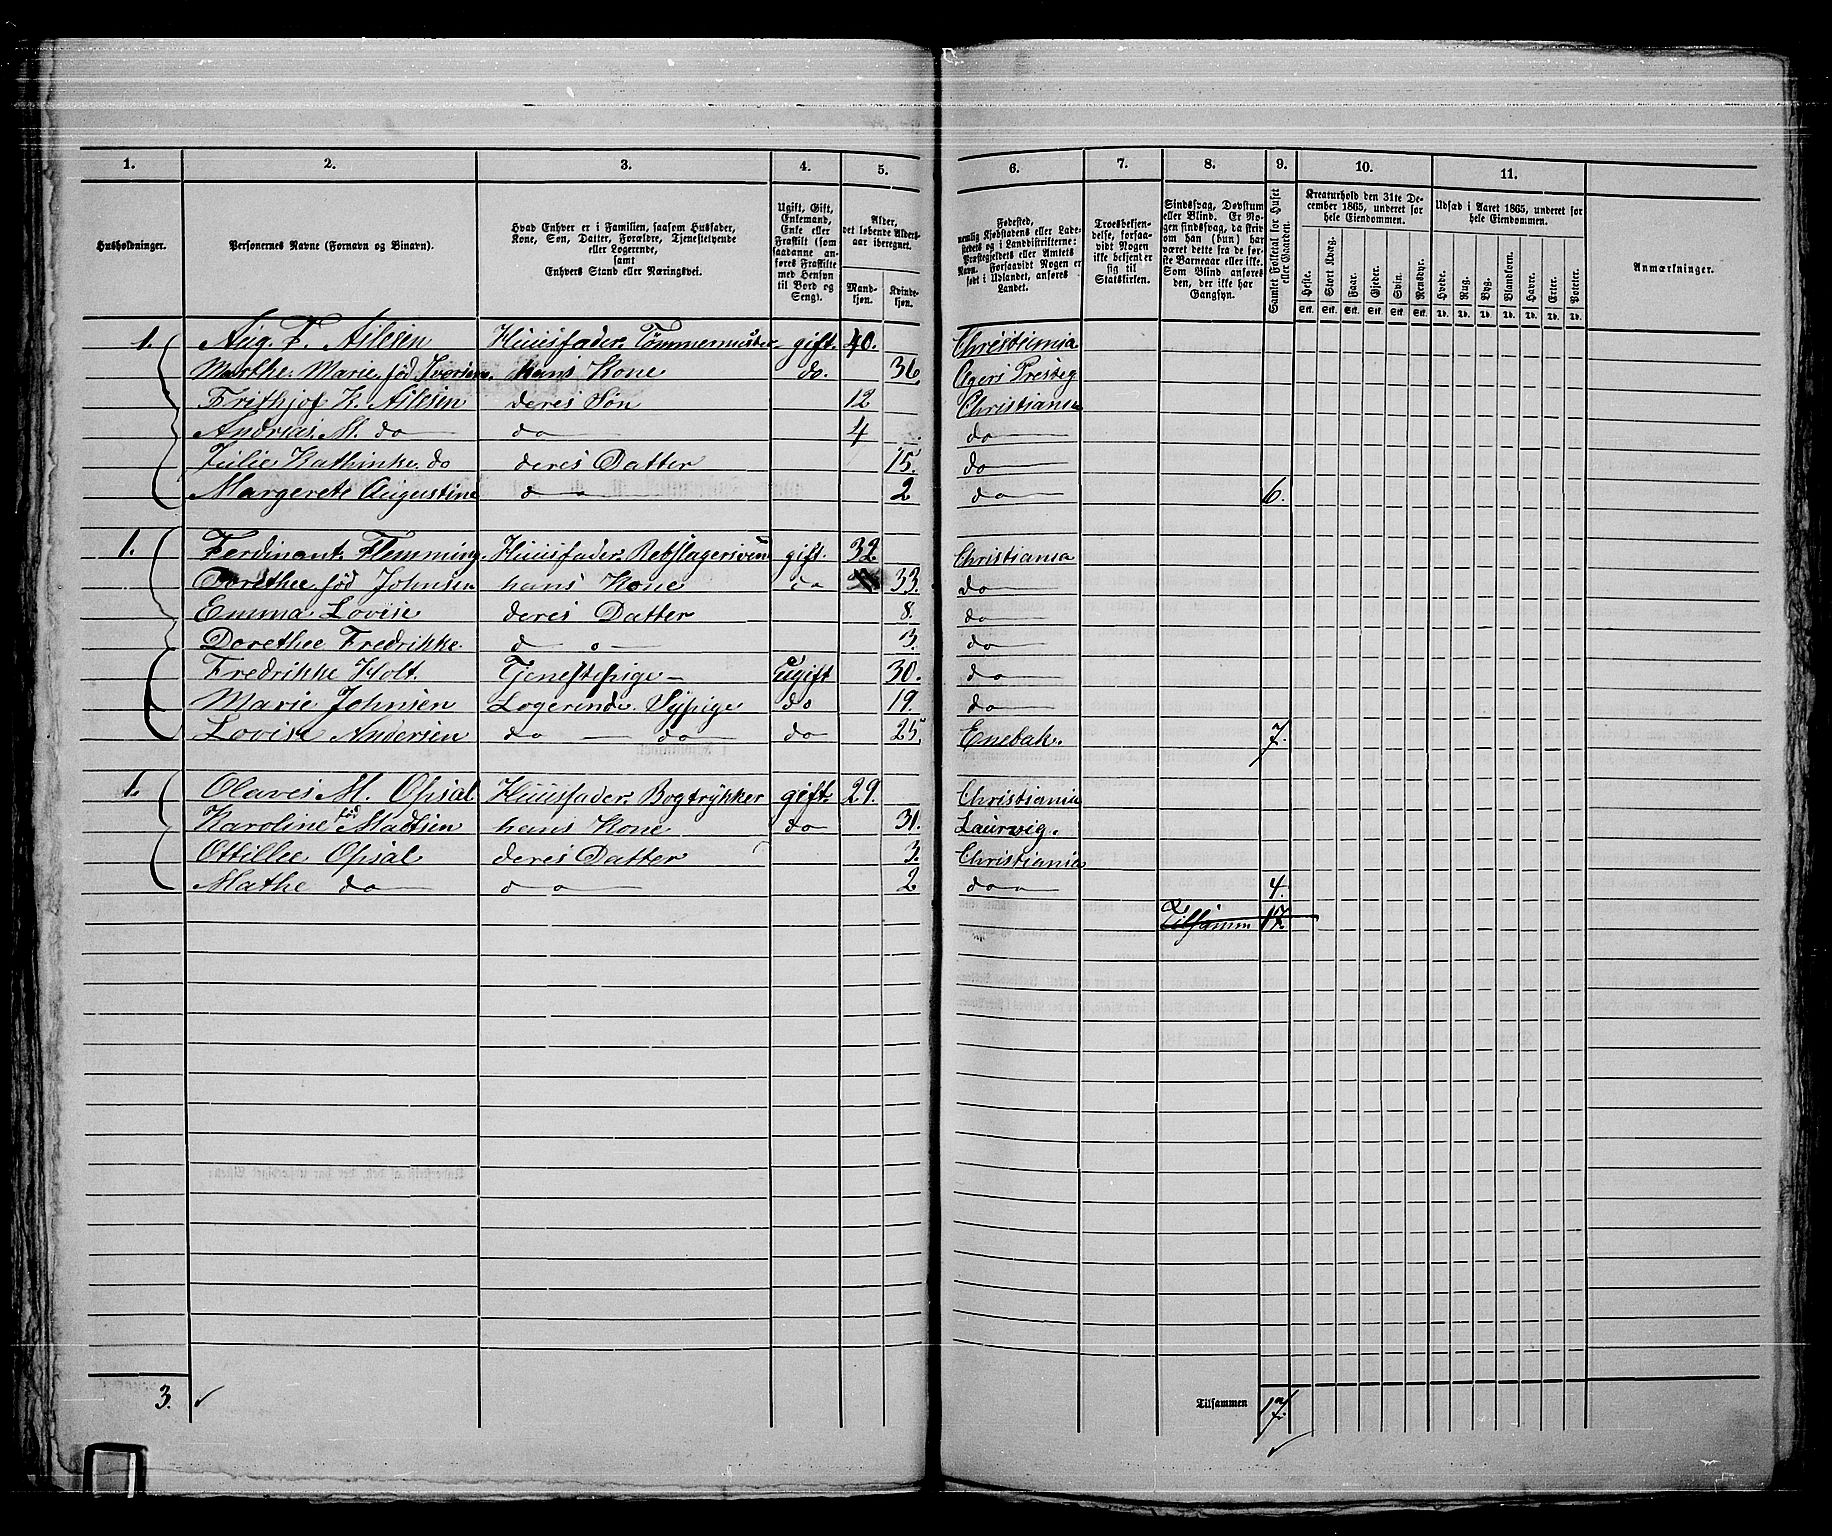 1. 2. 3. 4. 5. 6. 7. 8. 9. 10. 11.
Husholdninger.
Personernes Navne (Fornavn og Binavn).
Hvad Enhver er i Familien, saasom Husfader,
Kone, Søn, Datter, Forældre, Tjenestetyende
eller Logerende,
samt
Enhvers Stand eller Næringsvei.
Ugift, Gift,
Enkemand,
Enke eller
Fraskilt (som
saadanne an-
føres Fraskilte
med Hensyn
til Bord og
Seng).
Alder,
det løbende Alders-
aar iberegnet.
Mand-
kjøn.
Kvinde-
kjøn.
Fødested,
nemlig Kjøbstadens eller Lade-
stedets og i Landdistrikterne:
Præstegjeldets eller Amtets
Navn. Forsaavidt Nogen er
født i Udlandet, anføres
Landet.
Troesbekjen-
delse, forsaa-
vidt Nogen
ikke bekjender
sig til
Statskirken.
Sindssvag, Døvstum
eller Blind. Er No-
gen sindssvag, da skriv
om han (hun) har
været dette fra de før-
ste Barneaar eller ikke.
Som Blind anføres
den, der ikke har
Gangsyn.
Samlet Folketal for Huset
eller Gaarden.
Kreaturhold den 31te De-
cember 1865, underet for
hele Eiendommen.
Heste. Stort Kvæg. Faar. Gjeder. Svin. Rensdyr.
Stk. Stk. Stk. Stk. Stk. Stk.
Udsæd i Aaret 1865, underet for
hele Eiendommen.
Hvede. Rug. Byg. Blandkorn. Havre. Erter. Poteter.
Td. Td. Td. Td. Td. Td. Td.
Anmærkninger.
1. Aug. F. Nilsen Huusfader. Tømmermester gift. 40. Christiania
Marthe Marie fød Iversen. hans Kone do. 36. Agers Presteg
Frithjof K. Nilsen deres Søn 12 Christiania
Andreas M. do do 4 do
Julie Kathinke do deres Datter 15. do
Margerete Augustine do 2 do 6.
1. Ferdinant Flemming. Huusfader. Rebslagersvend gift. 32. Christiania
Dorethee fød Johnsen hans Kone do 33. do
Emma Lovise deres Datter 8. do
Dorethee Fredrikke. do 3. do
Fredrikke Holt. Tjenestepige Ugift 30. do
Marie Johnsen Logerinde. Sypige do 19. do
Lovise Andersen do do do 25 Enebak. 7.
1. Olaves M. Opsal Huusfader. Bogtrykker gift. 29. Christiania
Karoline fød Madsen hans Kone do 31. Laurvig.
Ottillee Opsal deres Datter 3. Christiania
Mathe do do 2 do 4.
Tilsamm 17.
3. Tilsammen 17.